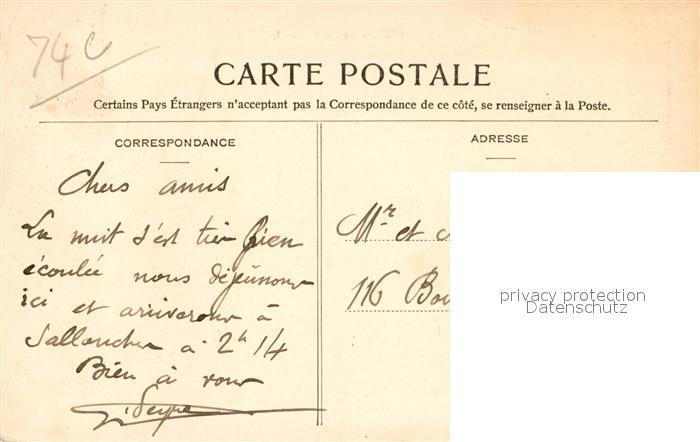 74 C
CARTE POSTALE
Certains Pays Étrangers n'acceptant pas la Correspondance de ce côté, se renseigner à la Poste.
CORRESPONDANCE
ADRESSE
Chers amis
La nuit s'est très bien
écoulée nous déjeunons
ici et arriverons à
Sallanches à 2h14
Bien à vous
Mr et
116 Bou
privacy protection
Datenschutz